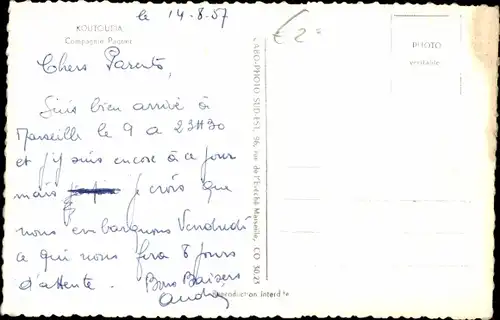 le 14-8-57
KOUTOUBIA
Compagnie Paquet
Chers Parents,
Suis bien arrivé à
Marseille le 9 a 23H30
et j'y suis encore à ce jour
mais je crois que
nous embarquons Vendredi
ce qui nous fera 8 jours
d'attente. Bons Baisers
André
€ 2=
LABO-PHOTO SUD-EST, 96, rue de l'Evêché Marseille, CO 50.23
Reproduction interdite
PHOTO
véritable